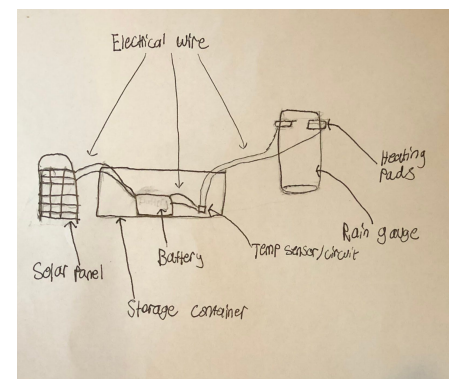 Electrical wire
Heating
Pads
Rain gauge
Temp sensor/circuit
Battery
Solar Panel
Storage container